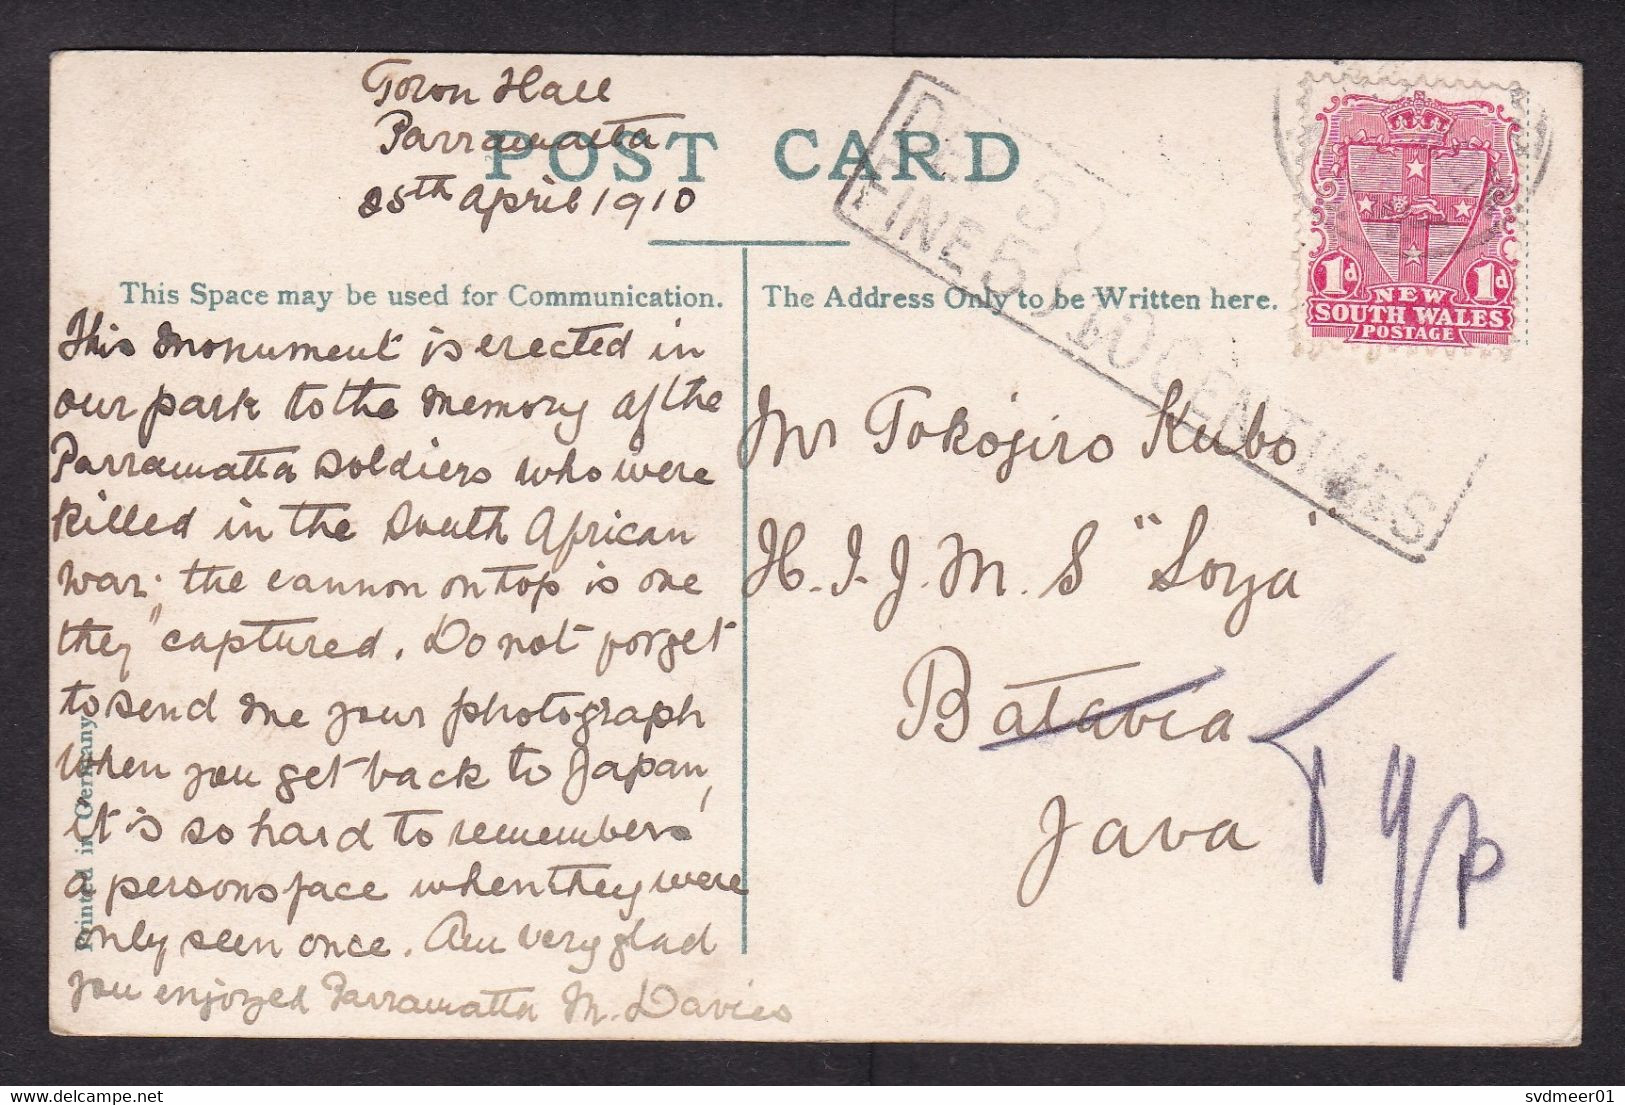 Town Hall
Parramatta
25th April 1910
POST CARD
DEF
FINE 5 5 10 CENTIMES
1d 1d
NEW
SOUTH WALES
POSTAGE
This Space may be used for Communication.
The Address Only to be Written here.
This monument is erected in
our park to the memory of the
Parramatta soldiers who were
killed in the South African
War; the cannon on top is one
they "captured. Do not forget
to send me your photograph
when you get back to Japan,
it is so hard to remember
a persons face when they were
only seen once. Am very glad
you enjoyed Parramatta M. Davies
Printed in Germany
Mr Tokojiro Kubo
H. I. J. M. S "Soya"
Batavia
Java
Delcampe.net
svdmeer01